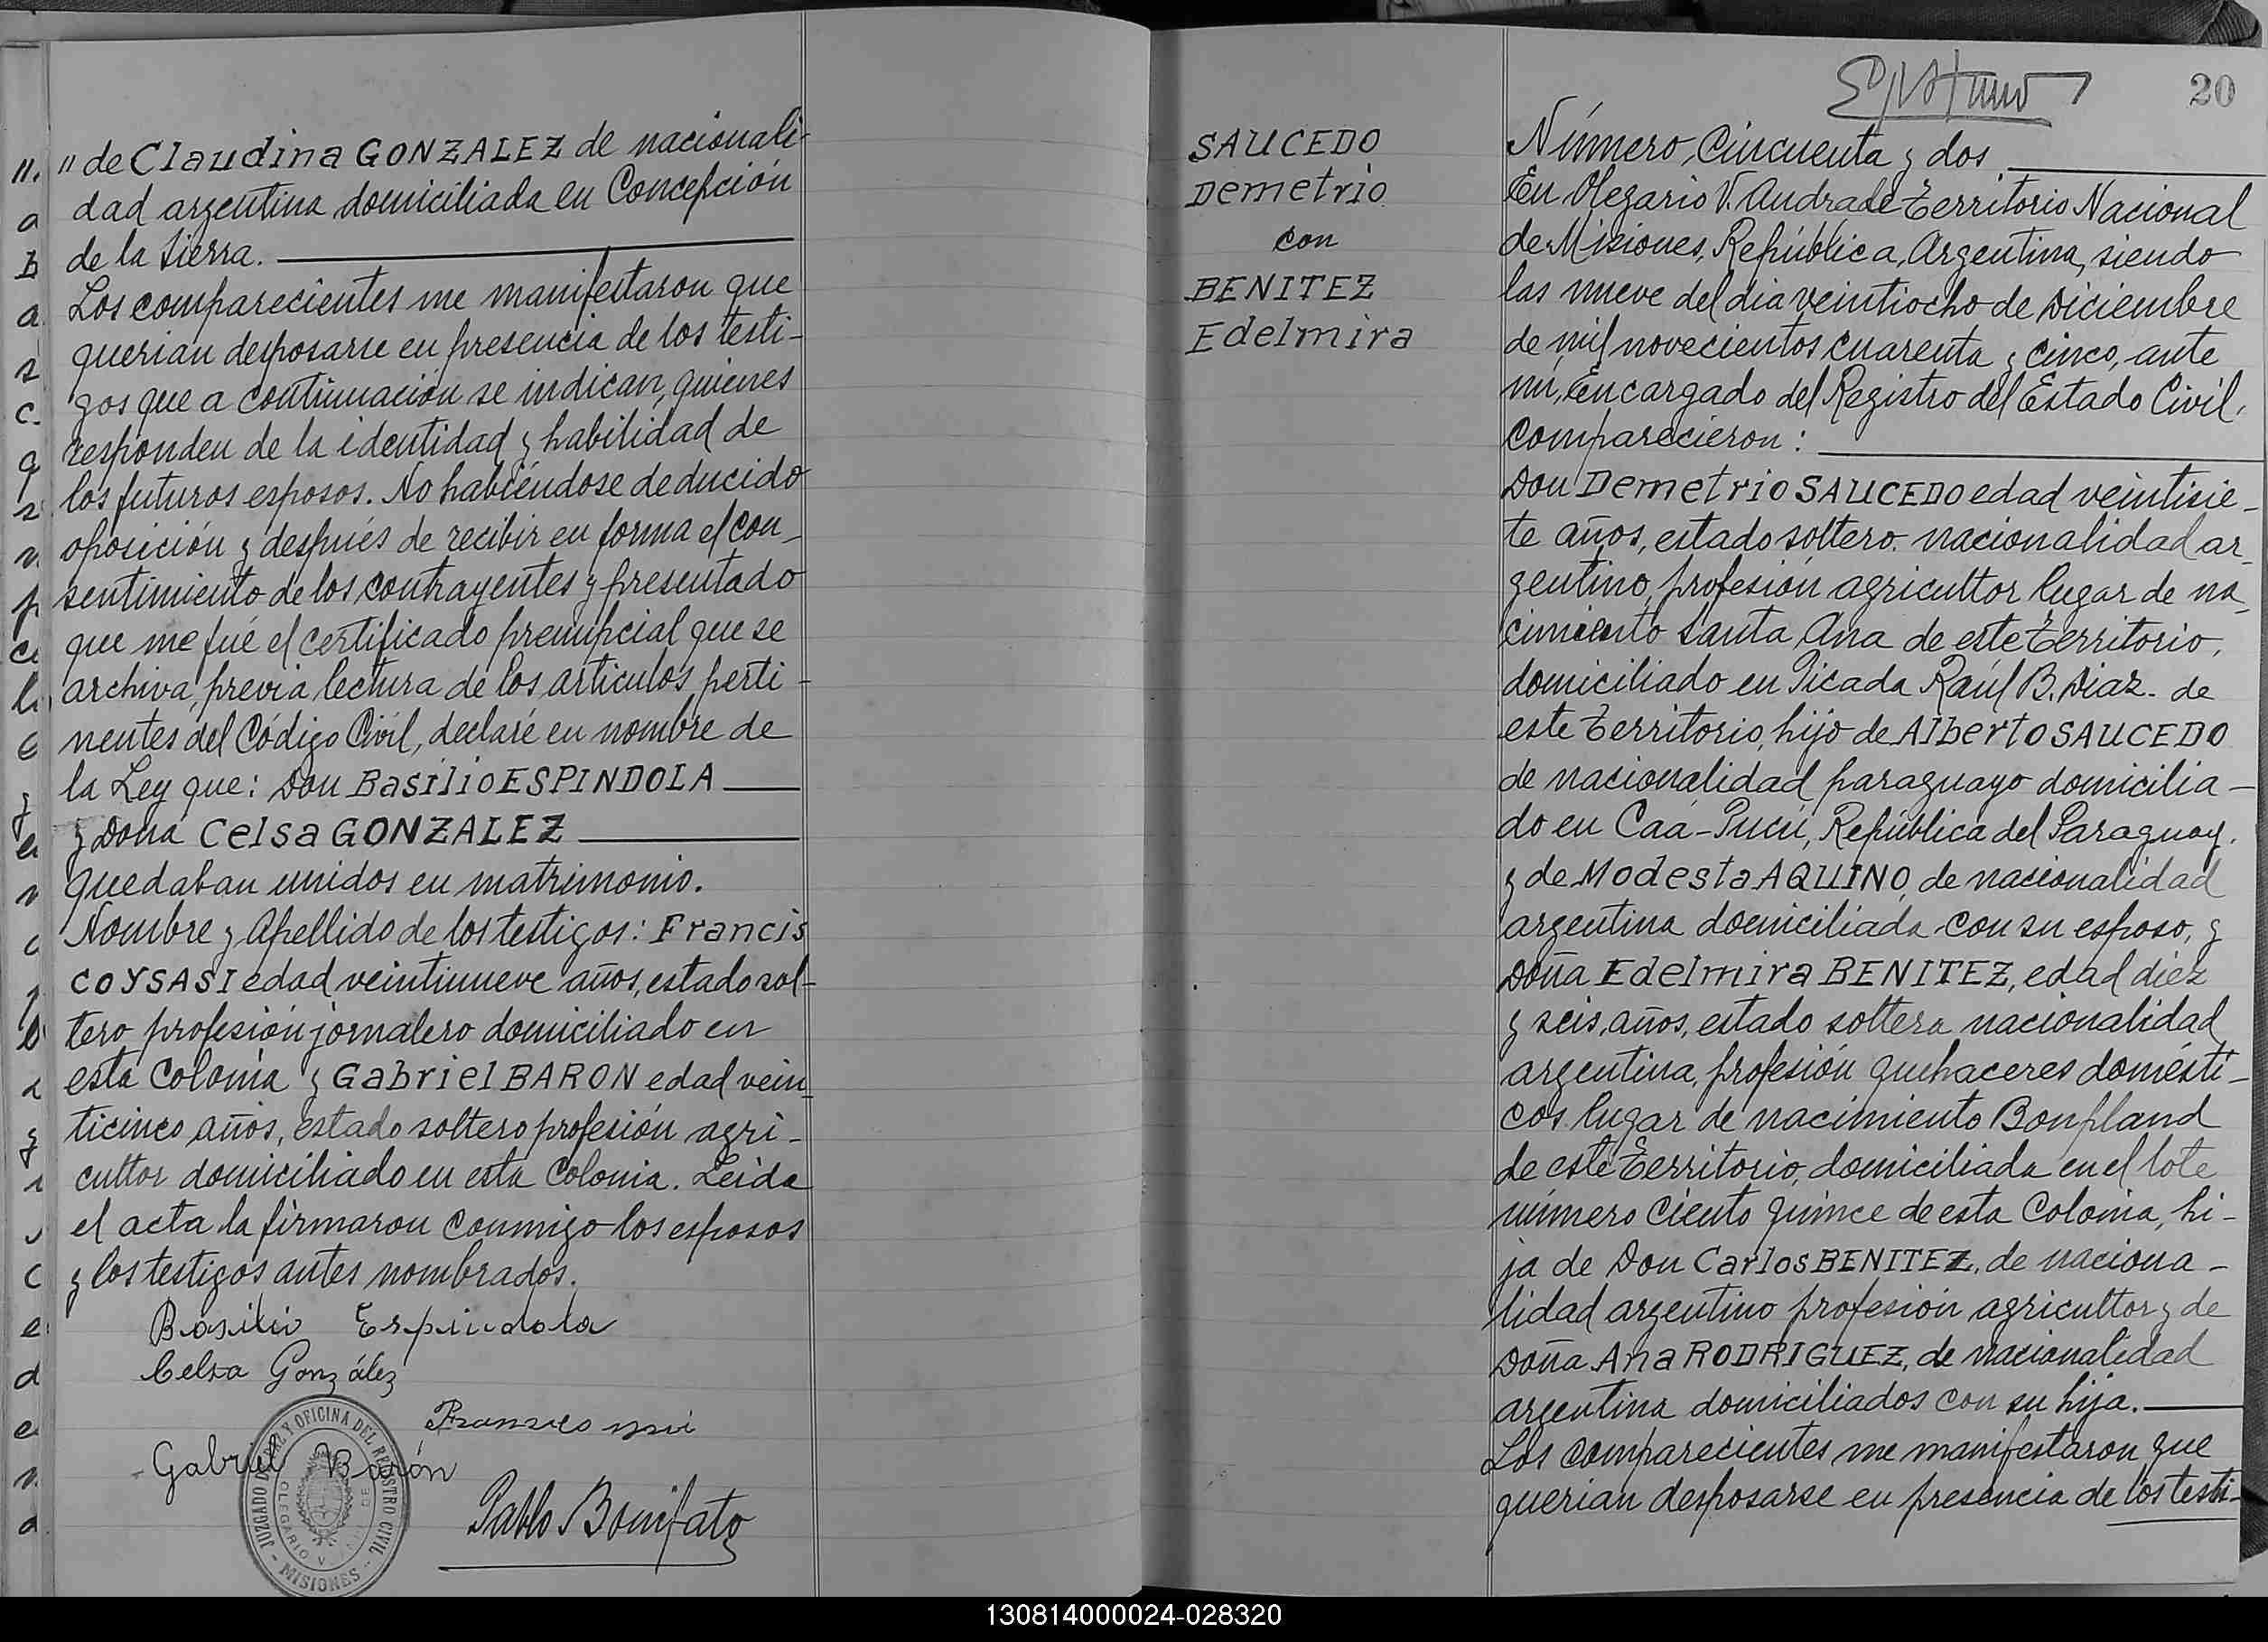 " de Claudina GONZALEZ de nacionali-
dad argentina domiciliada en Concepción
de la Sierra.
Los comparecientes me manifestaron que
querian desposarse en presencia de los testi-
gos que a continuación se indican, quienes
responden de la identidad y habilidad de
los futuros esposos. No habiéndose deducido
oposición y después de recibir en forma el con-
sentimiento de los contrayentes y presentado
que me fué el certificado prenupcial que se
archiva, previa lectura de los articulos perti-
nentes del Código Civil, declaré en nombre de
la Ley que: Don Basilio ESPINDOLA
y Doña Celsa GONZALEZ
quedaban unidos en matrimonio.
Nombre y Apellido de los testigos: Francis
CO YSASI edad veintinueve años, estado sol-
tero profesión jornalero domiciliado en
esta Colonia y Gabriel BARON edad vein
ticinco años, estado soltero profesión agri-
cultor domiciliado en esta Colonia. Leida
el acta la firmaron conmigo los esposos
y los testigos antes nombrados.
Basilio Espindola
Celsa González
Gabriel Barón
Pablo Bonifato
JUZGADO DE PAZ Y OFICINA DEL REGISTRO CIVIL
OLEGARIO V.
- MISIONES -
20
SAUCEDO
Demetrio
con
BENITEZ
Edelmira
Número Cincuenta y dos
En Olegario V. Andrade Territorio Nacional
de Misiones, República Argentina, siendo
las nueve del dia veintiocho de Diciembre
de mil novecientos cuarenta y cinco, ante
mí, Encargado del Registro del Estado Civil,
comparecieron:
Don Demetrio SAUCEDO edad veintisie-
te años, estado soltero. nacionalidad ar-
gentino, profesión agricultor lugar de na-
cimiento Santa Ana de este Territorio,
domiciliado en Picada Raúl B. Diaz. de
este Territorio, hijo de Alberto SAUCEDO
de nacionalidad paraguayo domicilia-
do en Caá-Pucú, República del Paraguay.
y de Modesta AQUINO, de nacionalidad
argentina domiciliada con su esposo, y
Doña Edelmira BENITEZ, edad diez
y seis, años, estado soltera nacionalidad
argentina, profesión quehaceres domésti-
cos lugar de nacimiento Bonpland
de este Territorio, domiciliada en el lote
número ciento quince de esta Colonia, hi-
ja de Don Carlos BENITEZ, de naciona-
lidad argentino profesión agricultor y de
Doña Ana RODRIGUEZ, de nacionalidad
argentina domiciliados con su hija.
Los comparecientes me manifestaron que
querian desposarse en presencia de los testi-
130814000024-028320